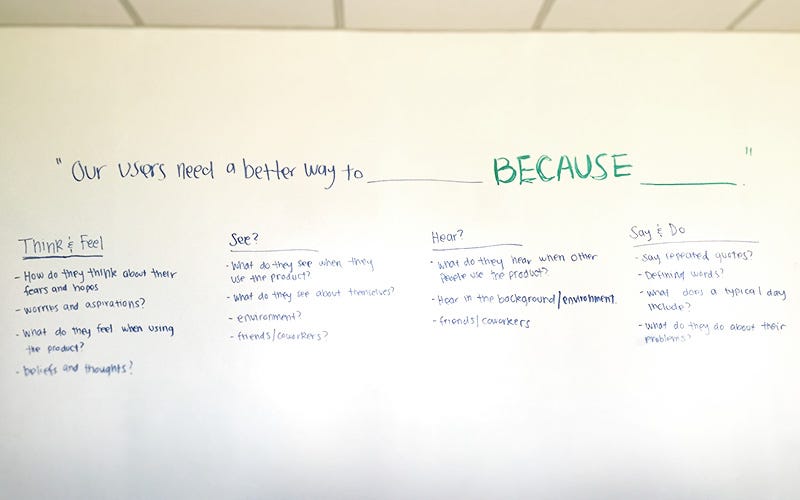 "Our users need a better way to ________ BECAUSE ________."
Think & Feel
- How do they think about their
fears and hopes
- worries and aspirations?
- What do they feel when using
the product?
- beliefs and thoughts?
See?
- What do they see when they
use the product?
- what do they see about themselves?
- environment?
- friends/coworkers?
Hear?
- what do they hear when other
people use the product?
- Hear in the background/environment
- friends/coworkers
Say & Do
- say repeated quotes?
- Defining words?
- what does a typical day
include?
- what do they do about their
problems?